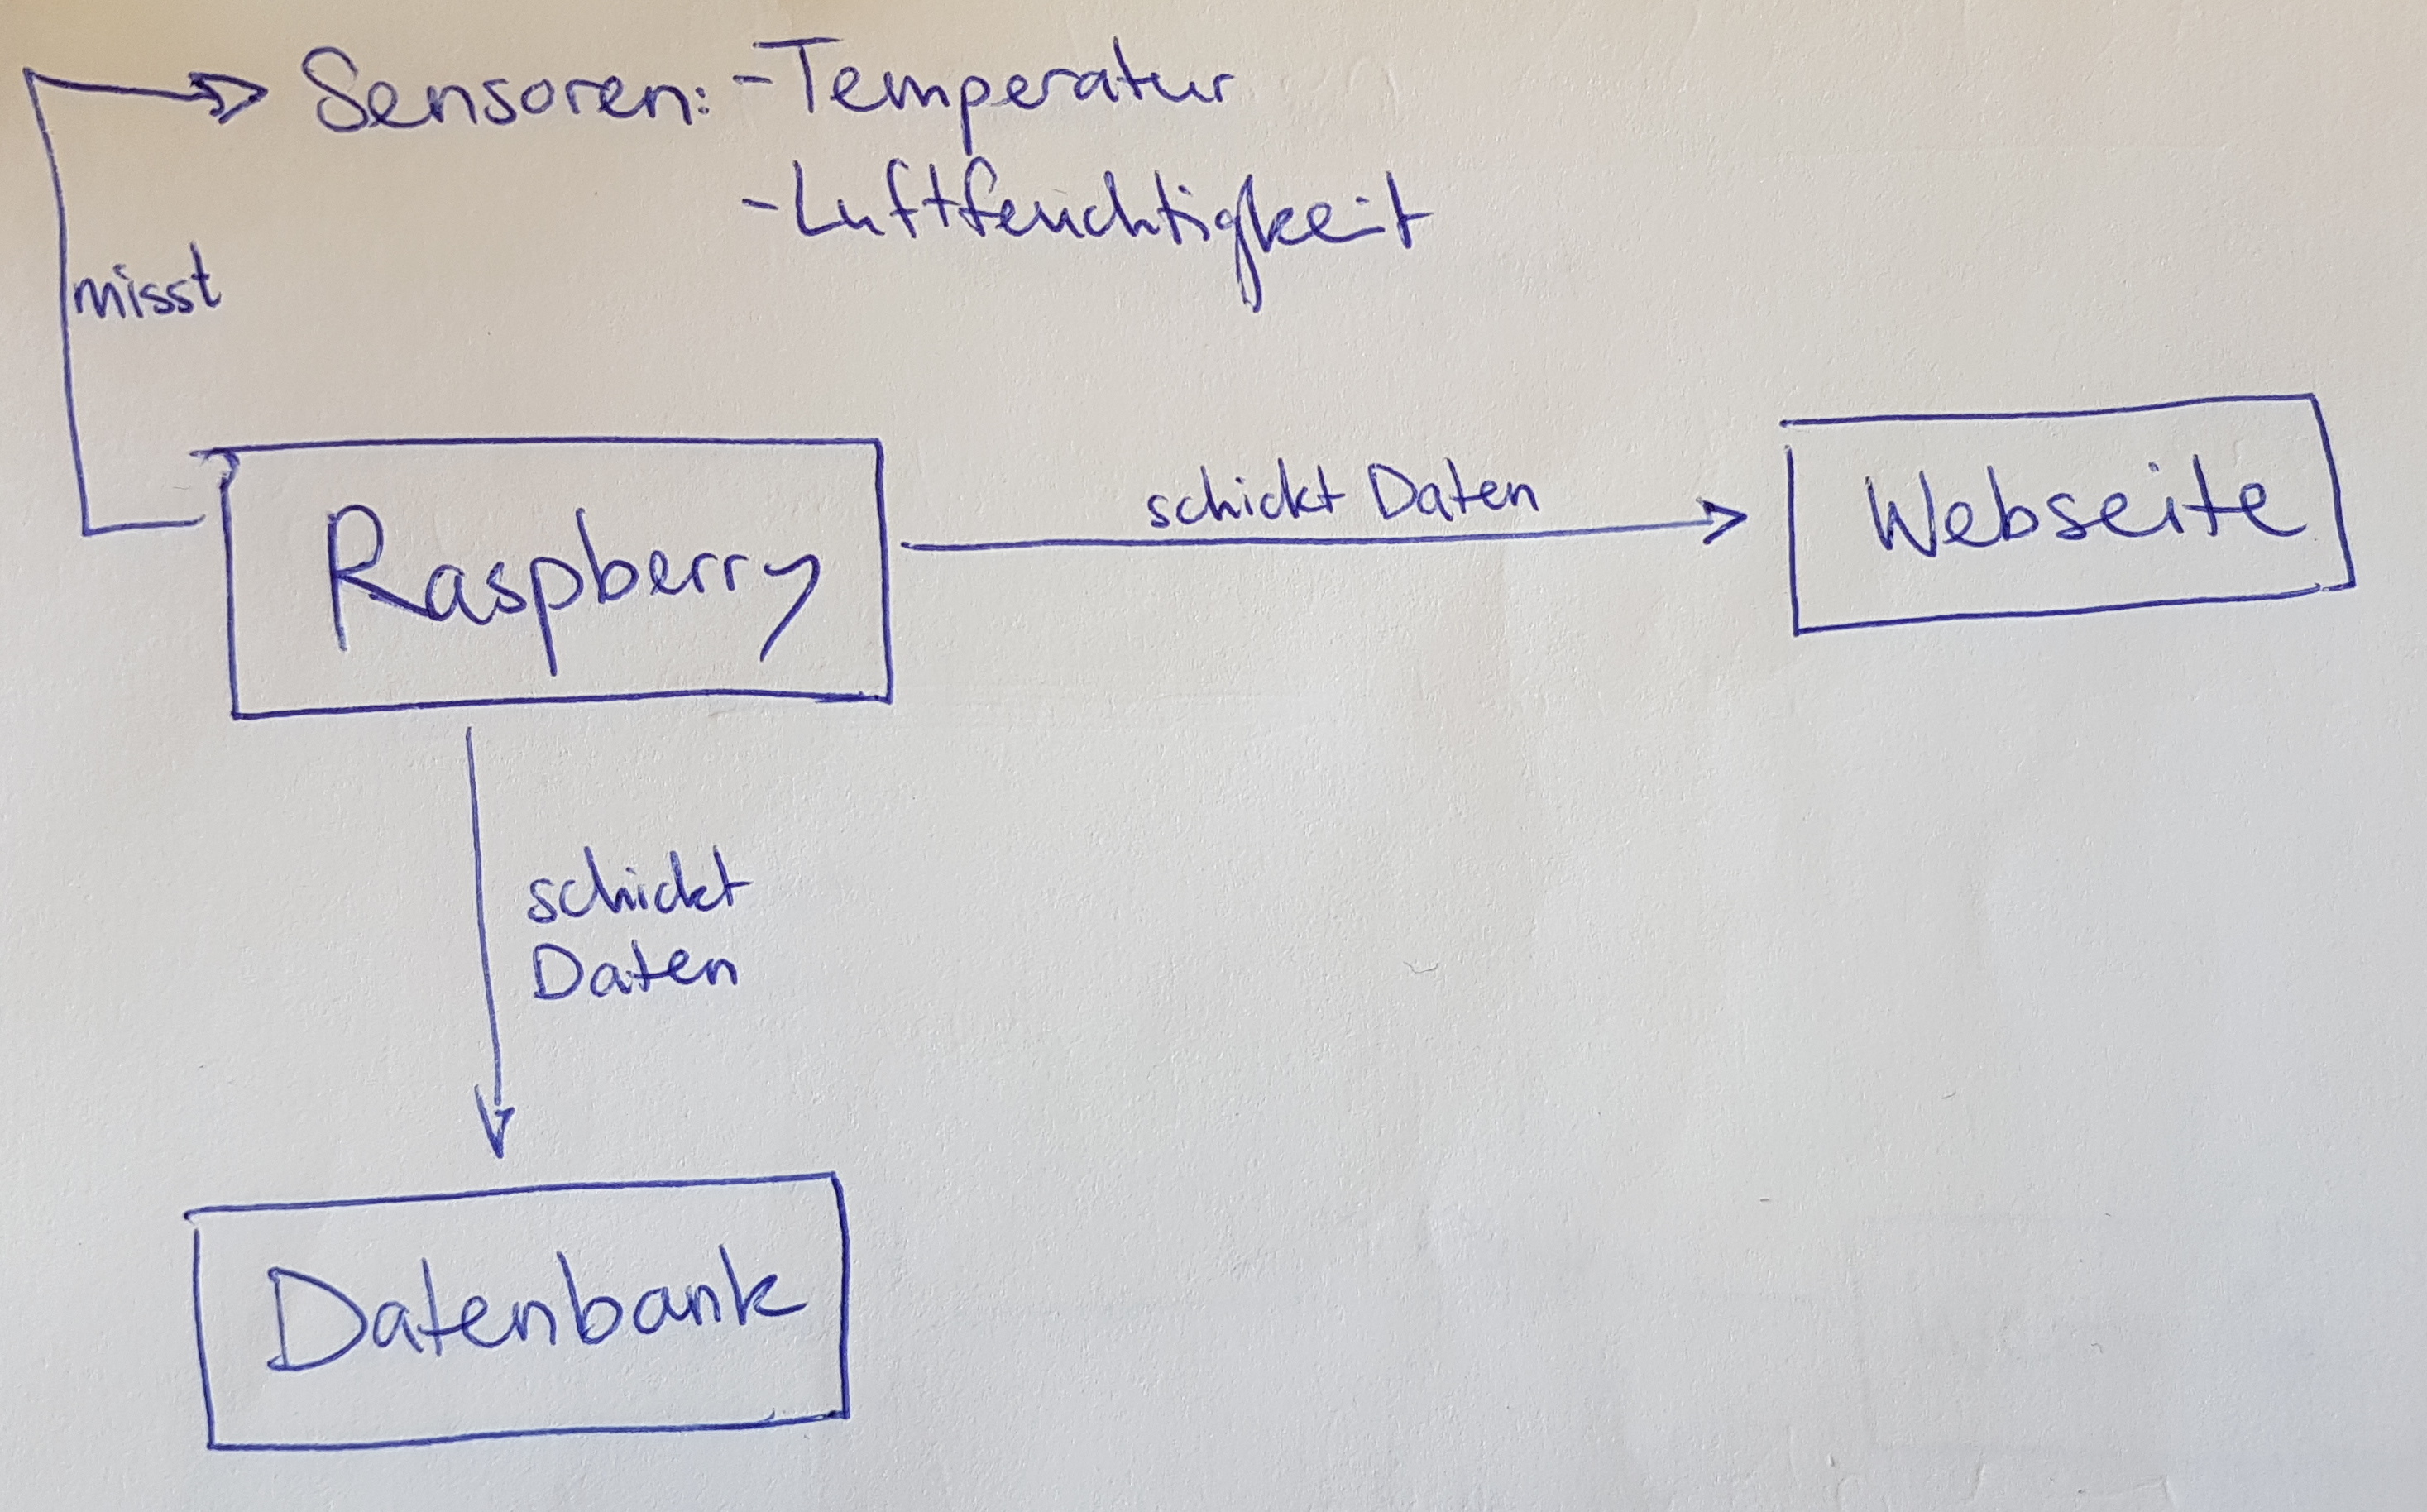 Sensoren: -Temperatur
-Luftfeuchtigkeit
misst
Raspberry
schickt Daten
Webseite
schickt
Daten
Datenbank